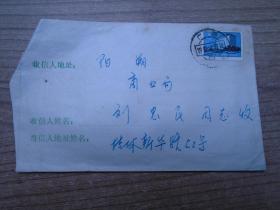 收信人地址: 阳朔
商业局
收信人姓名: 刘忠民同志收
寄信人地址姓名: 桂林新华路22号